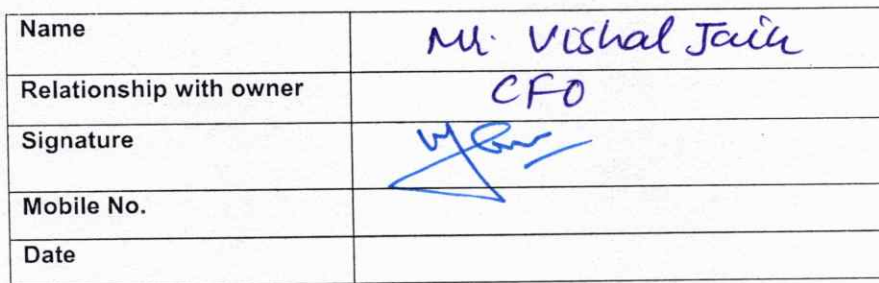 Name Mr. Vishal Jain
Relationship with owner CFO
Signature
Mobile No.
Date